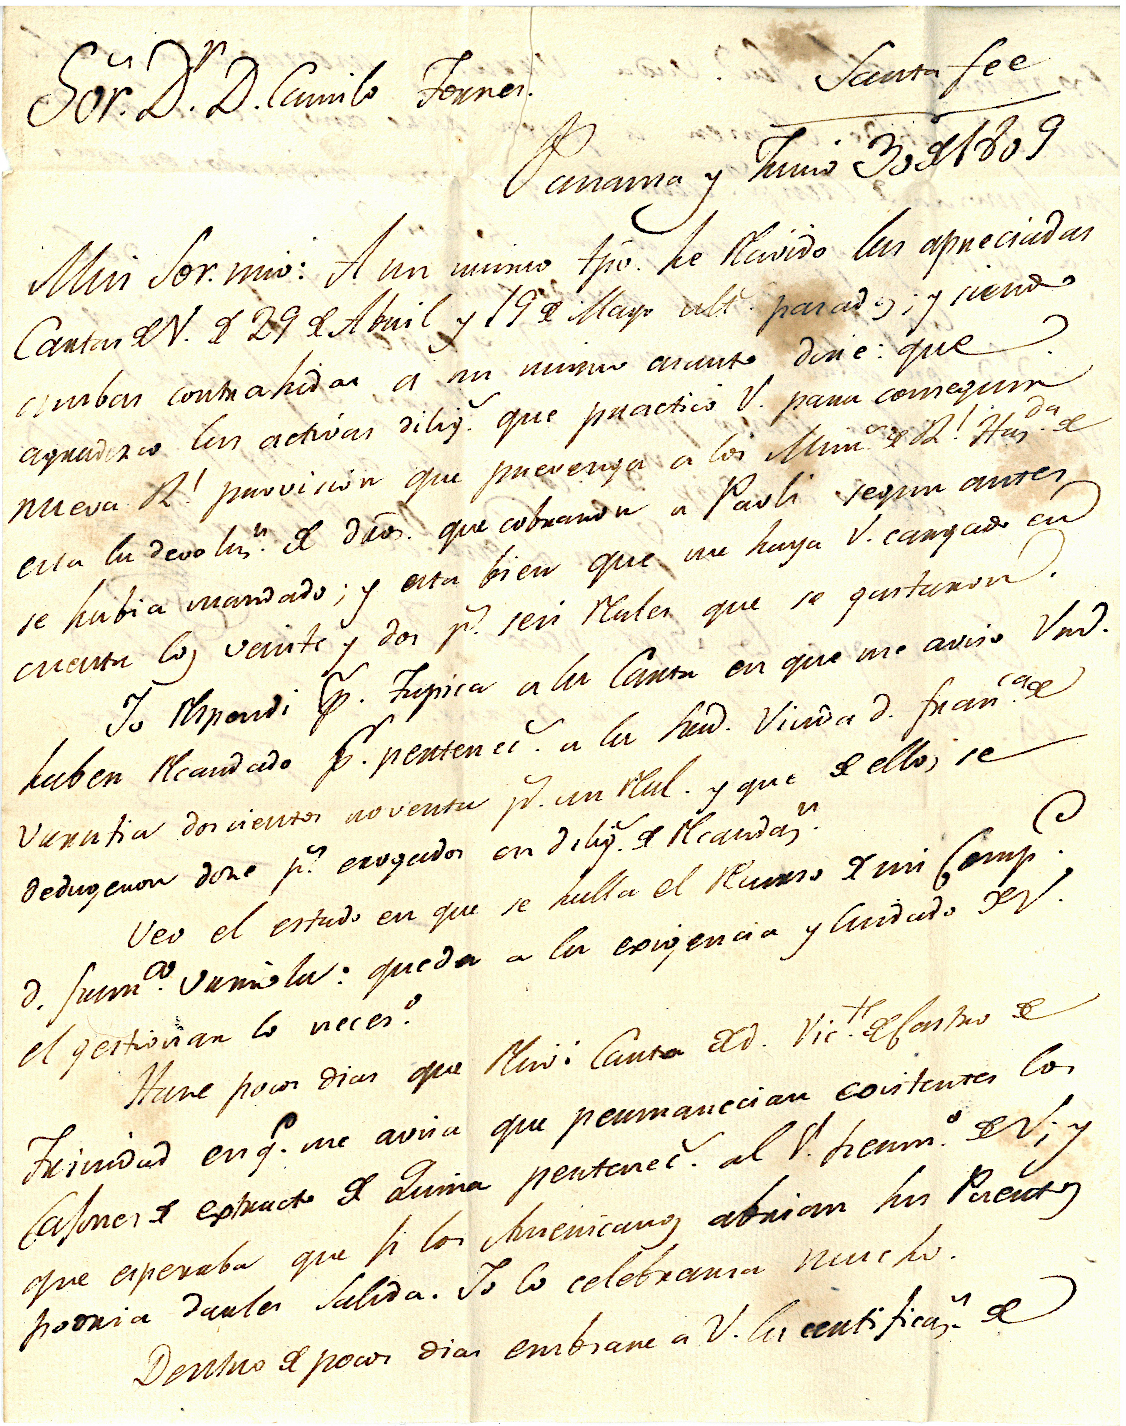 Sor. Dr. D. Camilo Torres.
Santa fee
Panama y Junio 30 de 1809
Mui Sor. mio: A un mismo tpo. he Resivido las apreciadas
Cartas de V. de 29 de Abril y 19 de Mayo ultº. pasados; y siendo
ambas contrahidas a un mismo asunto dire: que
agradezco las activas dilig.s que practicó V. para conseguir
nueva Rl. provision que prevenga a los Minos. de Rl. Hazda. de
esta la devoluzn. de dros. que cobraron a Paoli segun antes
se habia mandado; y esta bien que me haya V. cargado en
cuenta los veinte y dos ps. seis Reales que se gastaron.
Yo Respondi pr. Tupica a la Carta en que me aviso Vmd.
haber Recaudado pr. pertenec.s a la Sra. Viuda d. Franca. de
Urrutia doscientos noventa ps. un Real. y que de ellos se
dedugeron doze ps. erogados en dilig.s de Recaudazn.
Veo el estado en que se halla el Recurso de mi Compe.
d. Franco. Urriola: queda a la exigencia y Cuidado de V.
el gestionar lo necesº.
Hase pocos dias que Resivi Carta de d. Victe. de Castro de
Trinidad en qe. me avisa que permanecian existentes los
Cajones de extracto de Quina pertenec.s al Sr. hermº. de V; y
que esperaba que si los Americanos abrian sus Puertos
podria darles Salida. Yo lo celebrara mucho.
Dentro de pocos dias embiare a V. la certificazn. de